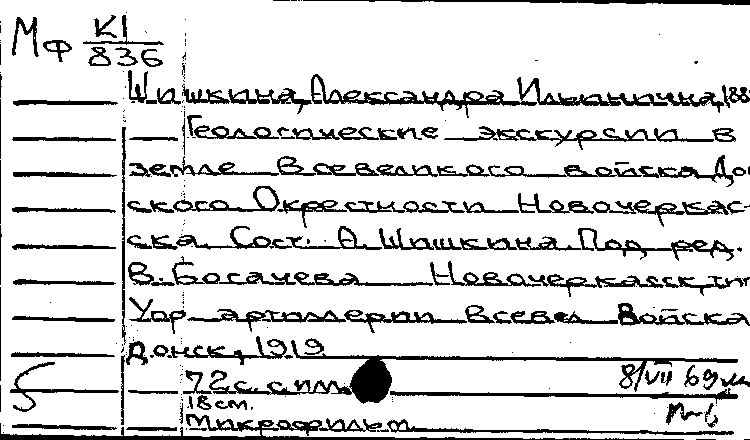 Мф К1
836
Шишкина, Александра Ильинична, 188
Геологические экскурсии в
земле Всевеликого войска Дон
ского. Окрестности Новочеркас-
ска. Сост. А. Шишкина. Под ред.
В. Богачева Новочеркасск, тип
Упр артиллерии Всевел Войска
Донск, 1919
72 с. с илл.
18 см.
Микрофильм
8/VII 69